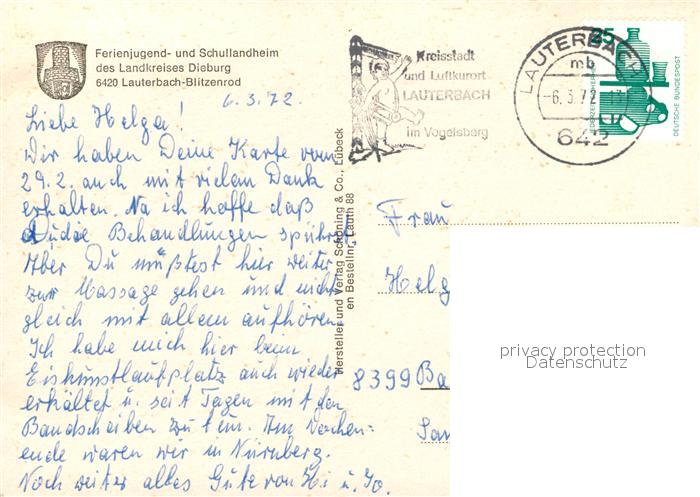 Ferienjugend- und Schullandheim
des Landkreises Dieburg
6420 Lauterbach-Blitzenrod
6.3.72
Liebe Helga!
Wir haben Deine Karte vom
29.2. auch mit vielem Dank
erhalten. Na ich hoffe daß
Du die Behandlungen spührst.
Aber Du müßtest hier weiter
zur Massage gehen und nicht
gleich mit allem aufhören.
Ich habe mich hier beim
Eiskunstlaufplatz auch wieder
erkältet u. seit Tagen mit den
Bandscheiben zu tun. Am Wochen-
ende waren wir in Nürnberg.
Noch weiter alles Gute von Hi u. Jo.
Hersteller und Verlag Schöning & Co., Lübeck
en Bestellnr. Lauth 88
Kreisstadt
und Luftkurort
LAUTERBACH
im Vogelsberg
LAUTERBACH
mb
-6.3.72
642
25
DEUTSCHE BUNDESPOST
Frau
Helg
8399 Ba
privacy protection
Datenschutz